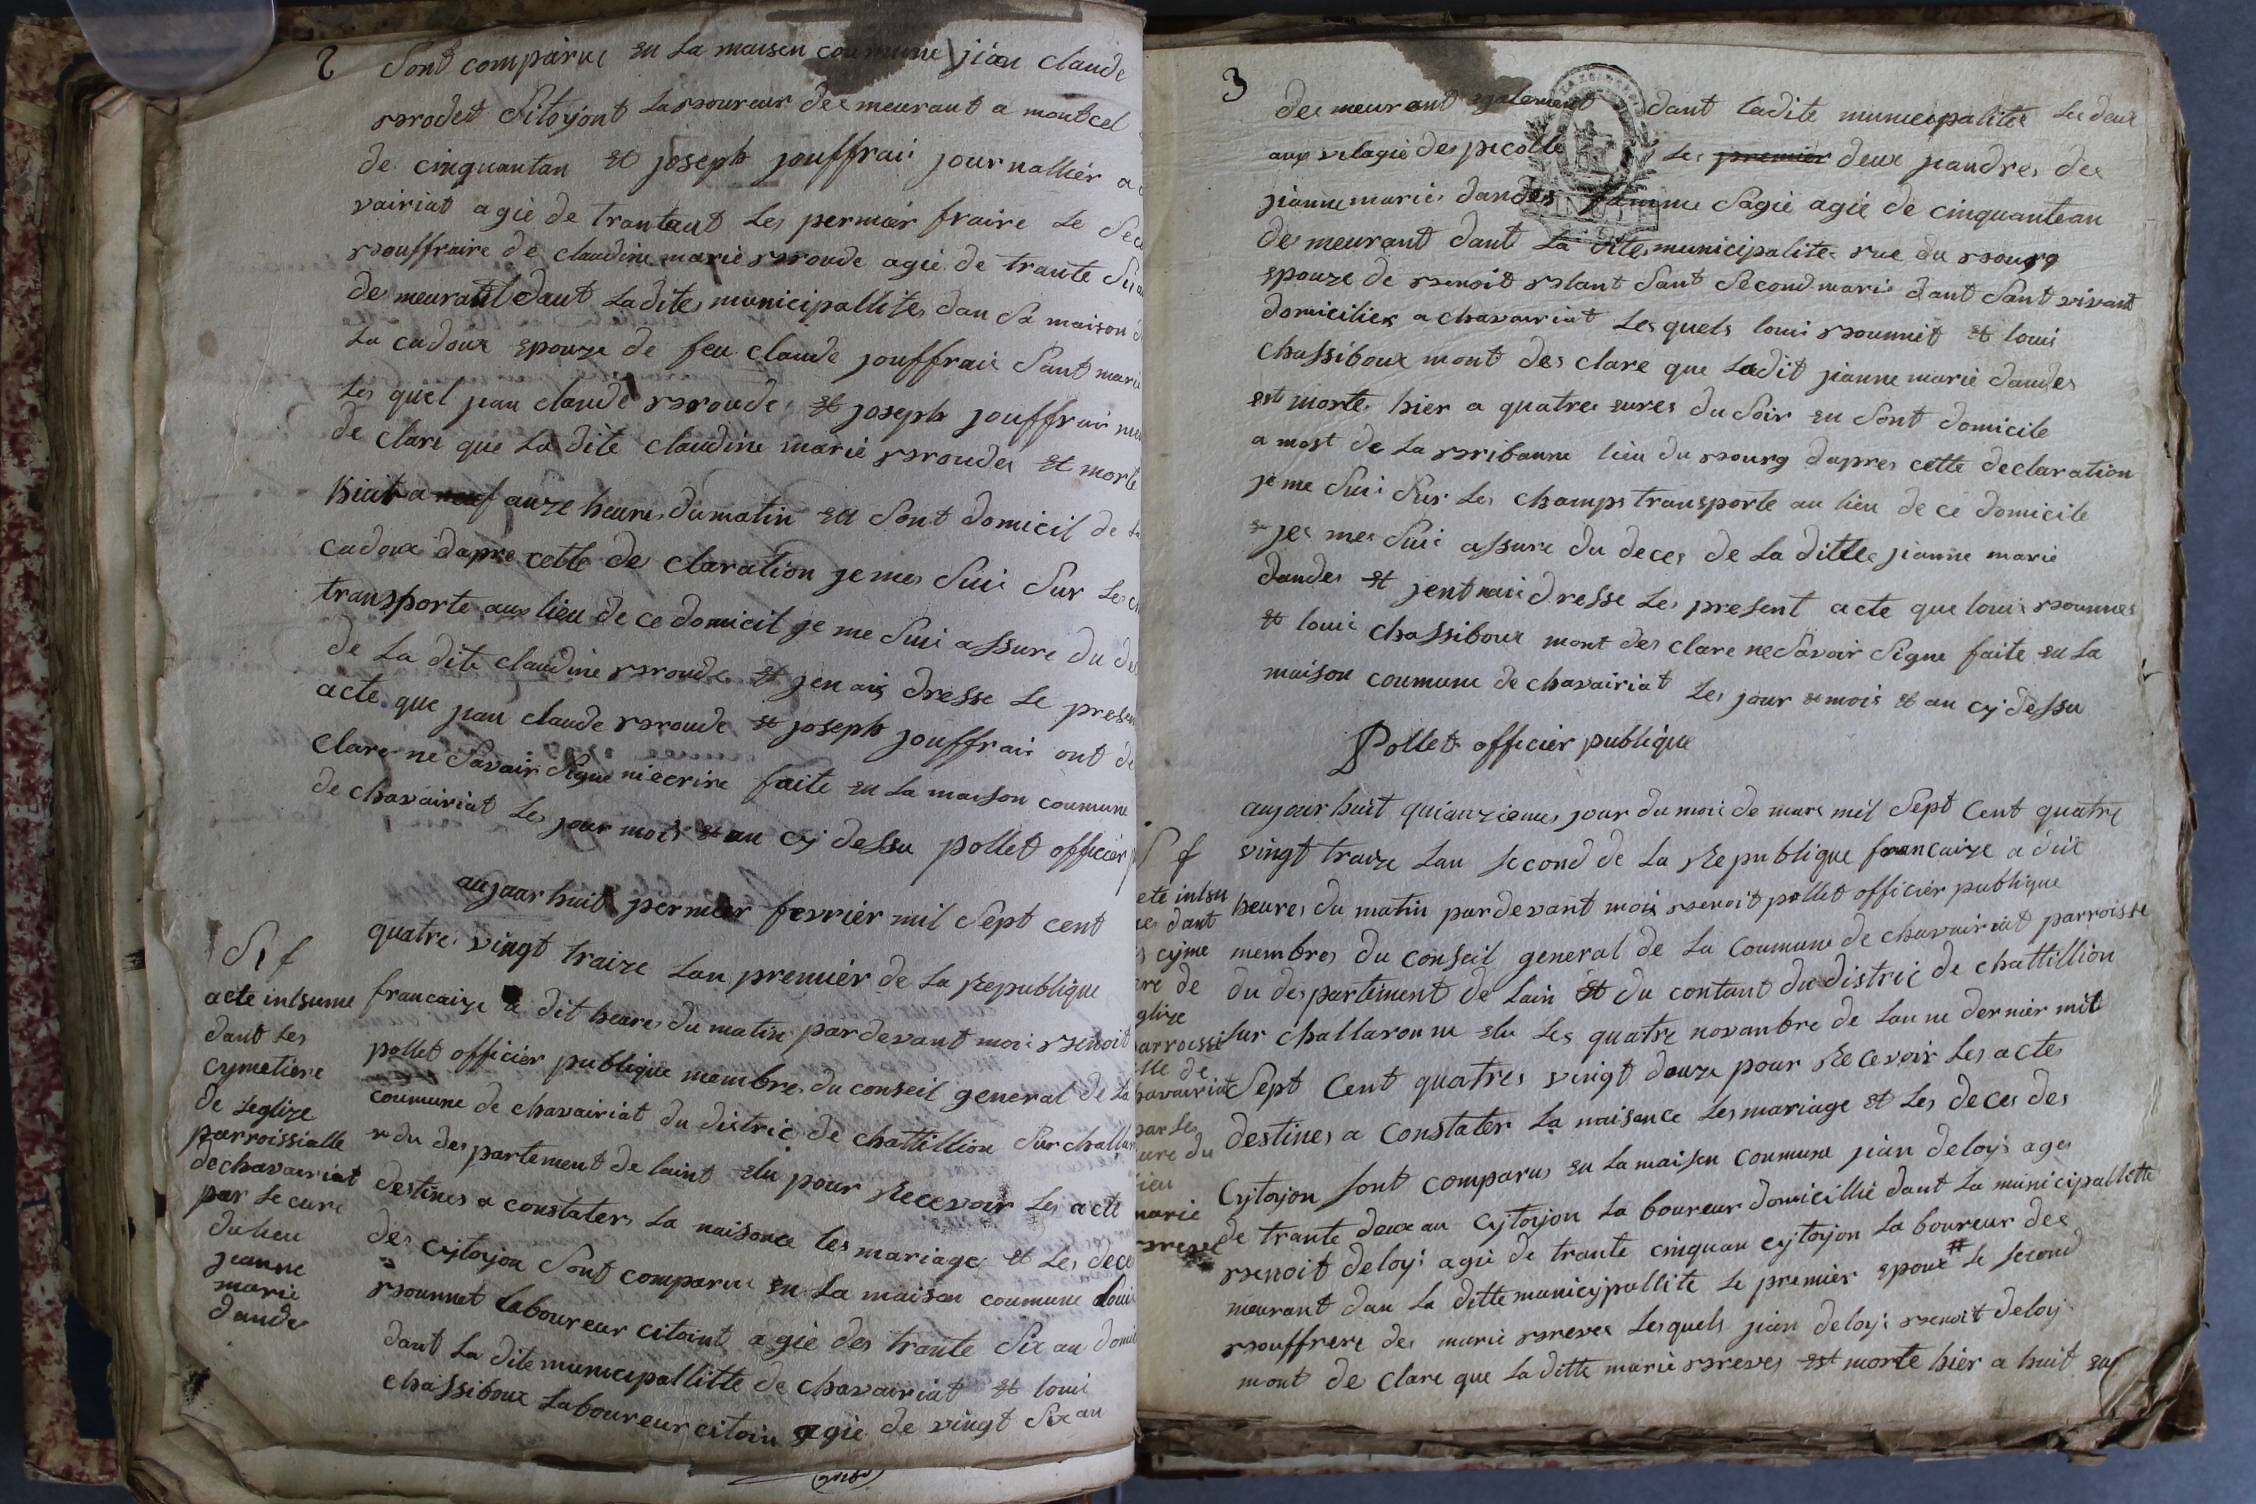 2
Sont comparue en La maisen coumune jian claude
broder Sitoyont Laboureur demeurant a montcel
de cinquantan et joseph jouffrai journallier a
vairiat agié de trantant Les permiér fraire Le Sec
bouffraire de claudine marie broude agié de trante Si
demeurant dant Ladite municipallite dan Sa maison d
La cadoux epouze de feu claude jouffrai Sant mari
Les quel jean claude broude et joseph jouffrai
de clare que La dite claudine marie broude et morte
hiert a neuf auze heures dumatin en Sont domicil de La
cadoux dapre cette de claration je mes Suii Sur Les
transporte aux lieu de ce domicil je me Suii assure du de
de La dite claudine broude et jen ais dresse Le presen
acte que jean claude broude et joseph jouffrai ont de
clare ne Savair Signe niécrire faite en La maison coumune
de chavairiat Les jour mois et an cy dessu pollet officiér
aujaarhuit permier fevriér mil Sept cent
quatre vingt traize Lan premiér de La Republique
S f
acte inlsume
dant Les
cymetiere
de Leglize
parroissialle
de chavairiat
par Le cure
du lieu
jeanne
marie
dande
francaize a dit heures du matin pardevant moi benoit
pollet officiér publique membre du conseil general de La
coumune de chavairiat du distric de chattillion Sur challar
du despartement de laint elu pour Recevoir Les acte
destines a constater La naisance les mariage et Les dece
des cytoyon Sont comparue en La maison coumune Loui
bounnet Laboureur citoint agié des trante Six an domi
dant La dite municipallitte de chavairiat et loui
chassiboux Laboureur citoin agié de vingt Six an
3
demeurant egalement dant Ladite municipalite Les deux
aux vilagie des picolle Les premier deux jiandres de
jianne marie dandes famme Sagie agié de cinquantean
demeurant dant La dite municipalite rue du bourg
epouze de benoit balant Sant Second mari dant Sant vivant
domiciliés a chavairiat Lesquels loui bounnet et loui
chassiboux mont des clare que Ladit jianne marie dandes
est morte hier a quatre eures du Soir en Sont domicile
a mast de La bribanne lieu du bourg dapres cette declaration
je me Suii Sur Les champs transporte au lieu de ce domicile
je me Suii assure du deces de La ditte jianne marie
dandes et jent naii dresse Les present acte que loui bounnes
et loui chassiboux mont des clare ne Savoir Signe faite en La
maison coumune de chavairiat Les jour mois et an cy dessu
Pollet officiér publique
aujourhuit quianzieme jour du moii de mars mil Sept Cent quatre
vingt traize Lan Second de La Republique francaize a diit
heures du matin pardevant moii benoit pollet officiér publique
membres du conseil general de La Coumune de chavairiat parroisse
du despartement de Lain et du contant du distric de chattillion
Sur challaronne elu Les quatre novanbre de Lanne dernier mil
Sept Cent quatres vingt douze pour Recevoir Les actes
destines a Constater La naisance Les mariage et Les deces des
Cytoyon Sont comparus en La maisen coumune jean deloys ages
de trante deux an Cytoyon La boureur domicillié dant La municipallitte
benoit deloy agié de trante cinquan cytoyon La boureur de
meurant dan La ditte municypallite Le premiér epoux # Le Second
bouffrere des marie breves Lesquels jian deloy benoit deloy
mont de clare que La ditte marie breves est morte hier a huit eu
S f
ete inlsu
es dant
cyme
ere de
glize
arroissi
lle de
havairiat
par Les
ure du
ieu
marie
breve